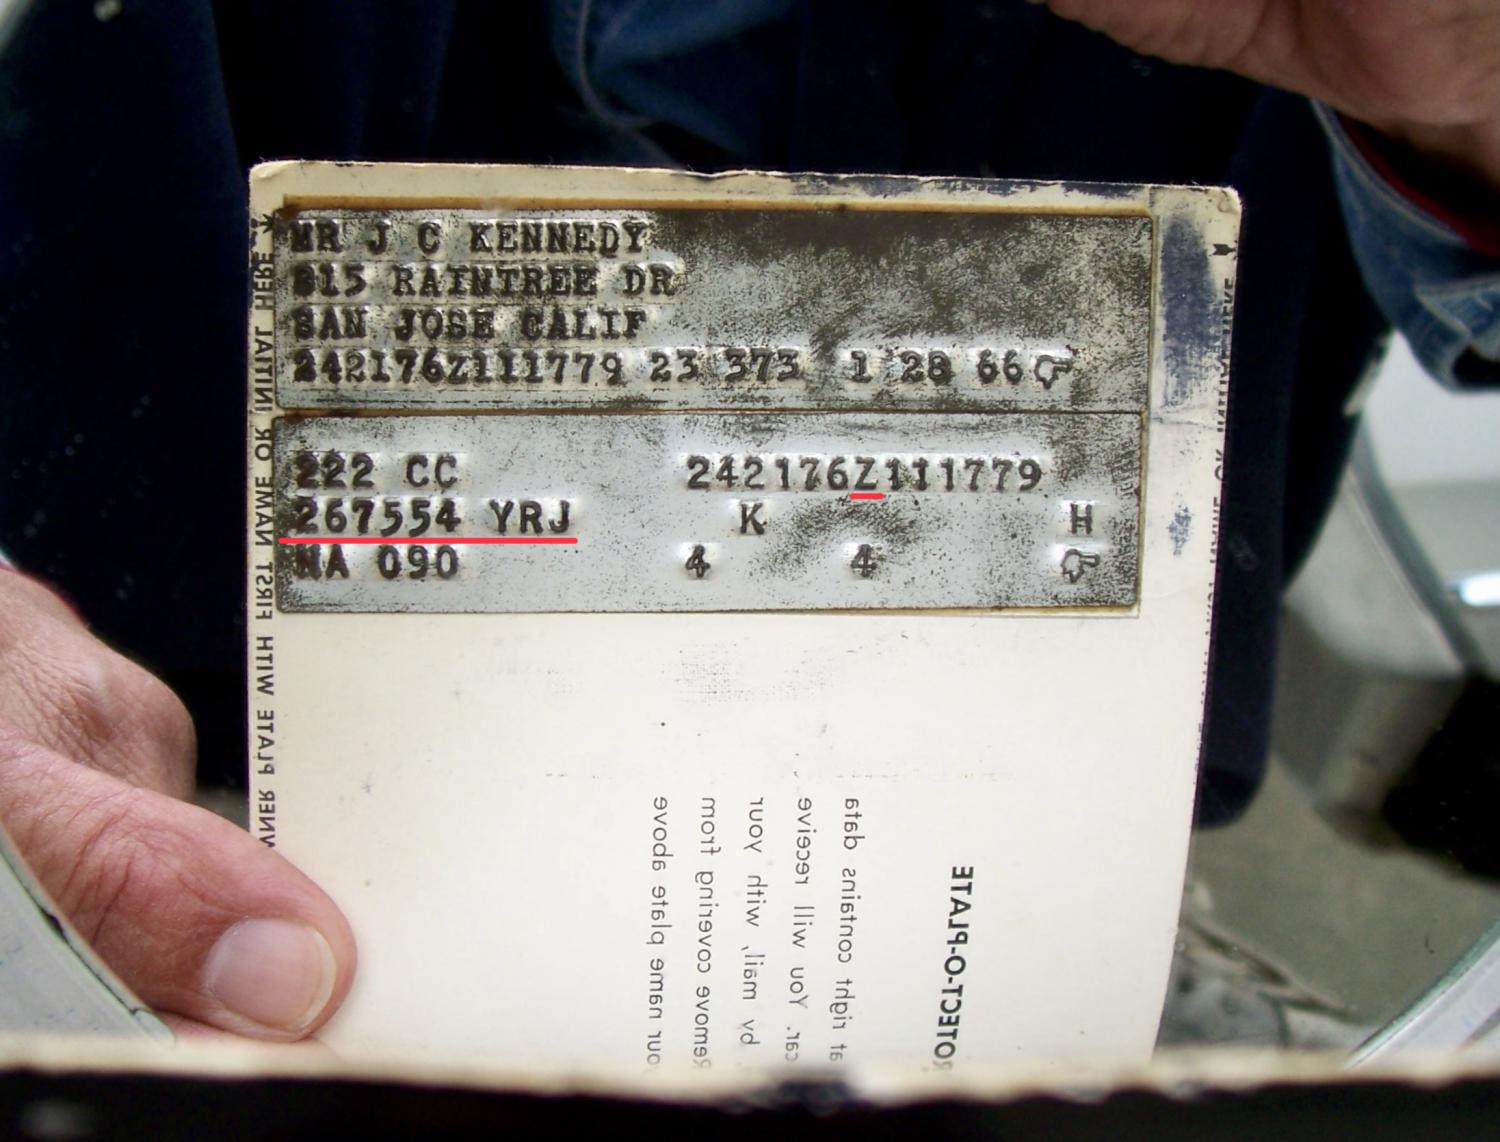 MR J C KENNEDY
815 RAINTREE DR
SAN JOSE CALIF
242176Z111779 23 373 1 28 66
222 CC 242176Z111779
267554 YRJ K H
NA 090 4 4
WNER PLATE WITH FIRST NAME OR INITIAL HERE
ROTECT-O-PLATE
at right contains data
car. You will receive
by mail, with your
Remove covering from
our name plate above